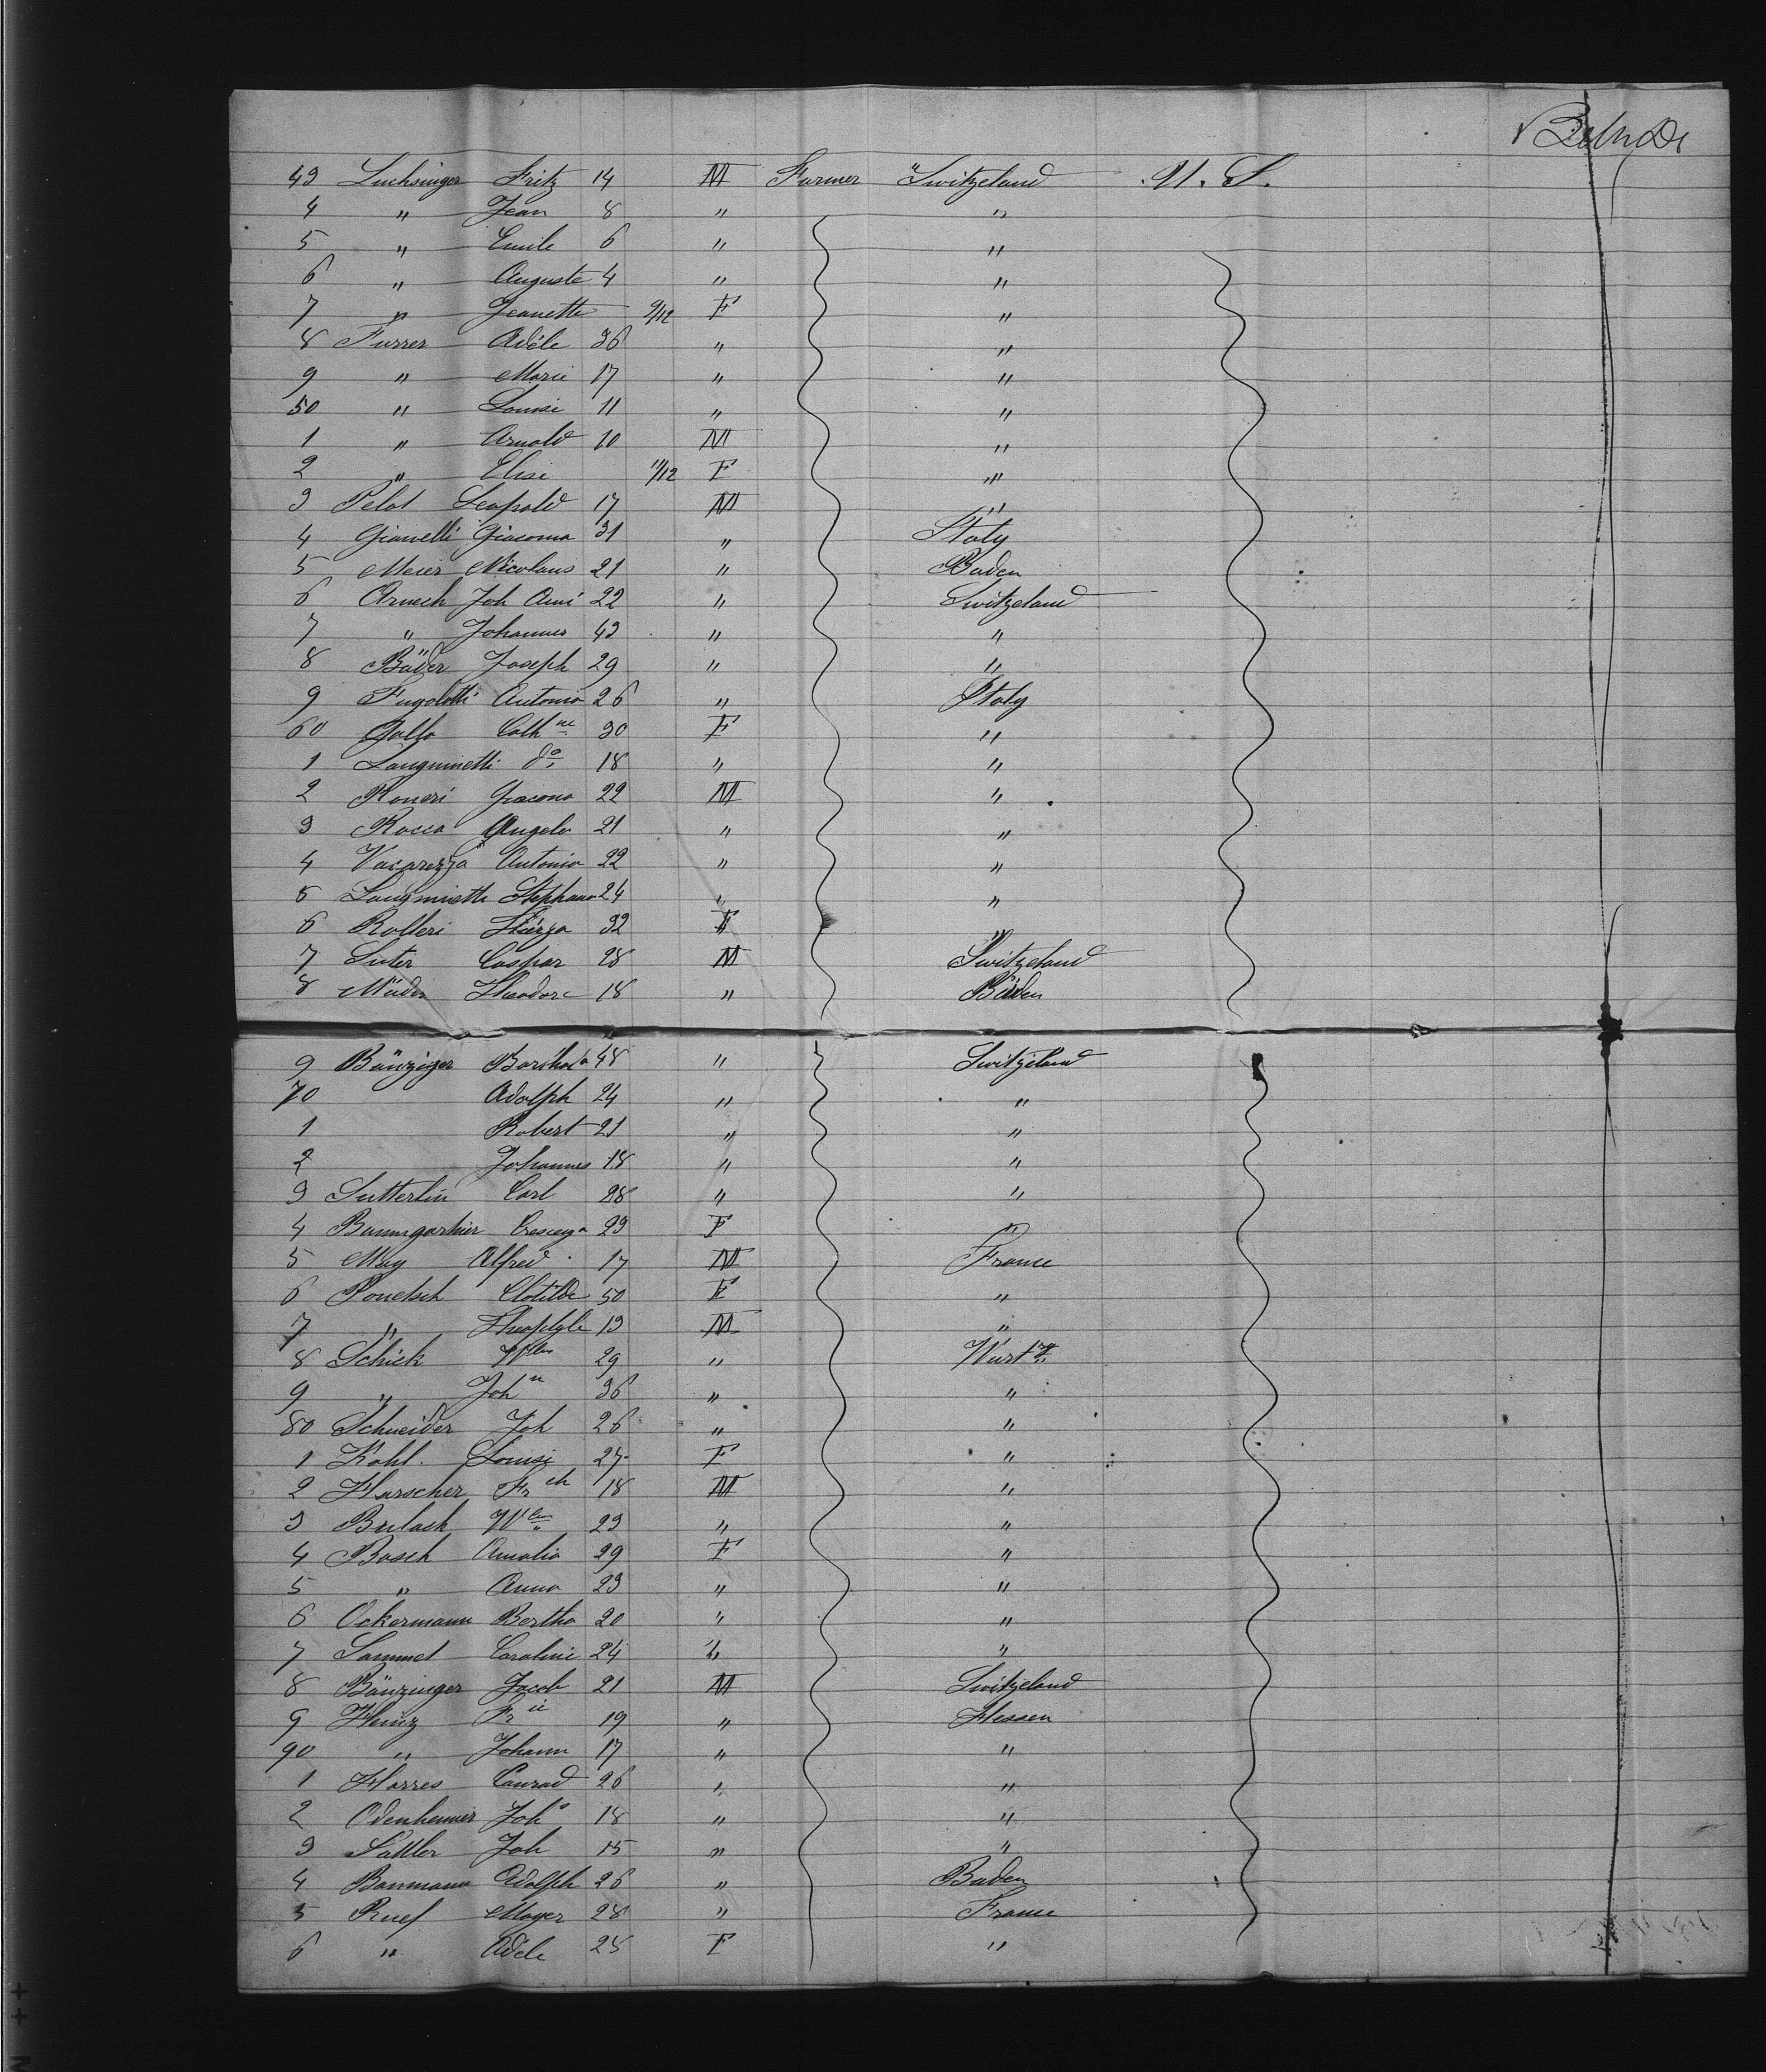 43 Luchsinger Fritz 14 M Farmer Switzeland U. S.
4 " Jean 8 " "
5 " Emile 6 " "
6 " Auguste 4 " "
7 " Jeanette 9/12 F "
8 Furrer Adèle 36 " "
9 " Marie 17 " "
50 " Louise 11 " "
1 " Arnold 10 M "
2 " Elise 11/12 F "
3 Pelot Leopold 17 M "
4 Gianelli Giacomo 31 " Italy
5 Meier Nicolaus 21 " Baden
6 Arnech Joh 22 " Switzeland
7 " Johannes 43 " "
8 Bäder Joseph 29 " "
9 Fugolotti Antonio 26 " Italy
60 Gallo Cathne 30 F "
1 do 18 " "
2 Roneri Giacomo 22 M "
3 Rocca Angelo 21 " "
4 Vacarezza Antonio 22 " "
5 Stephano 24 " "
6 Rolleri 32 F "
7 Suter Caspar 28 M Switzeland
8 Mäder Theodore 18 " Baden
9 Bänziger 48 " Switzeland
70 Adolph 24 " "
1 Robert 21 " "
2 Johannes 18 " "
3 Sutterlin Carl 28 " "
4 Baumgartner 23 F "
5 May Alfred 17 M France
6 Clotilde 50 F "
7 " 13 M "
8 Schick Wlm 29 " Wurt
9 " John 36 " "
80 Schneider Joh 26 " "
1 Kohl Louise 27 F "
2 Harscher Frch 18 M "
3 Wlm 23 " "
4 Bosch Amalia 29 F "
5 " Anna 23 " "
6 Ockermann Bertha 20 " "
7 Sammet Caroline 24 " "
8 Bänzinger Jacob 21 M Switzeland
9 Heinz 19 " Hessen
90 " Johann 17 " "
1 Harres Conrad 26 " "
2 Odenheimer Joh 18 " "
3 Sattler Joh 15 " "
4 Baumann Adolph 26 " Baden
5 Ruef Mayer 28 " France
6 " Adèle 25 F "